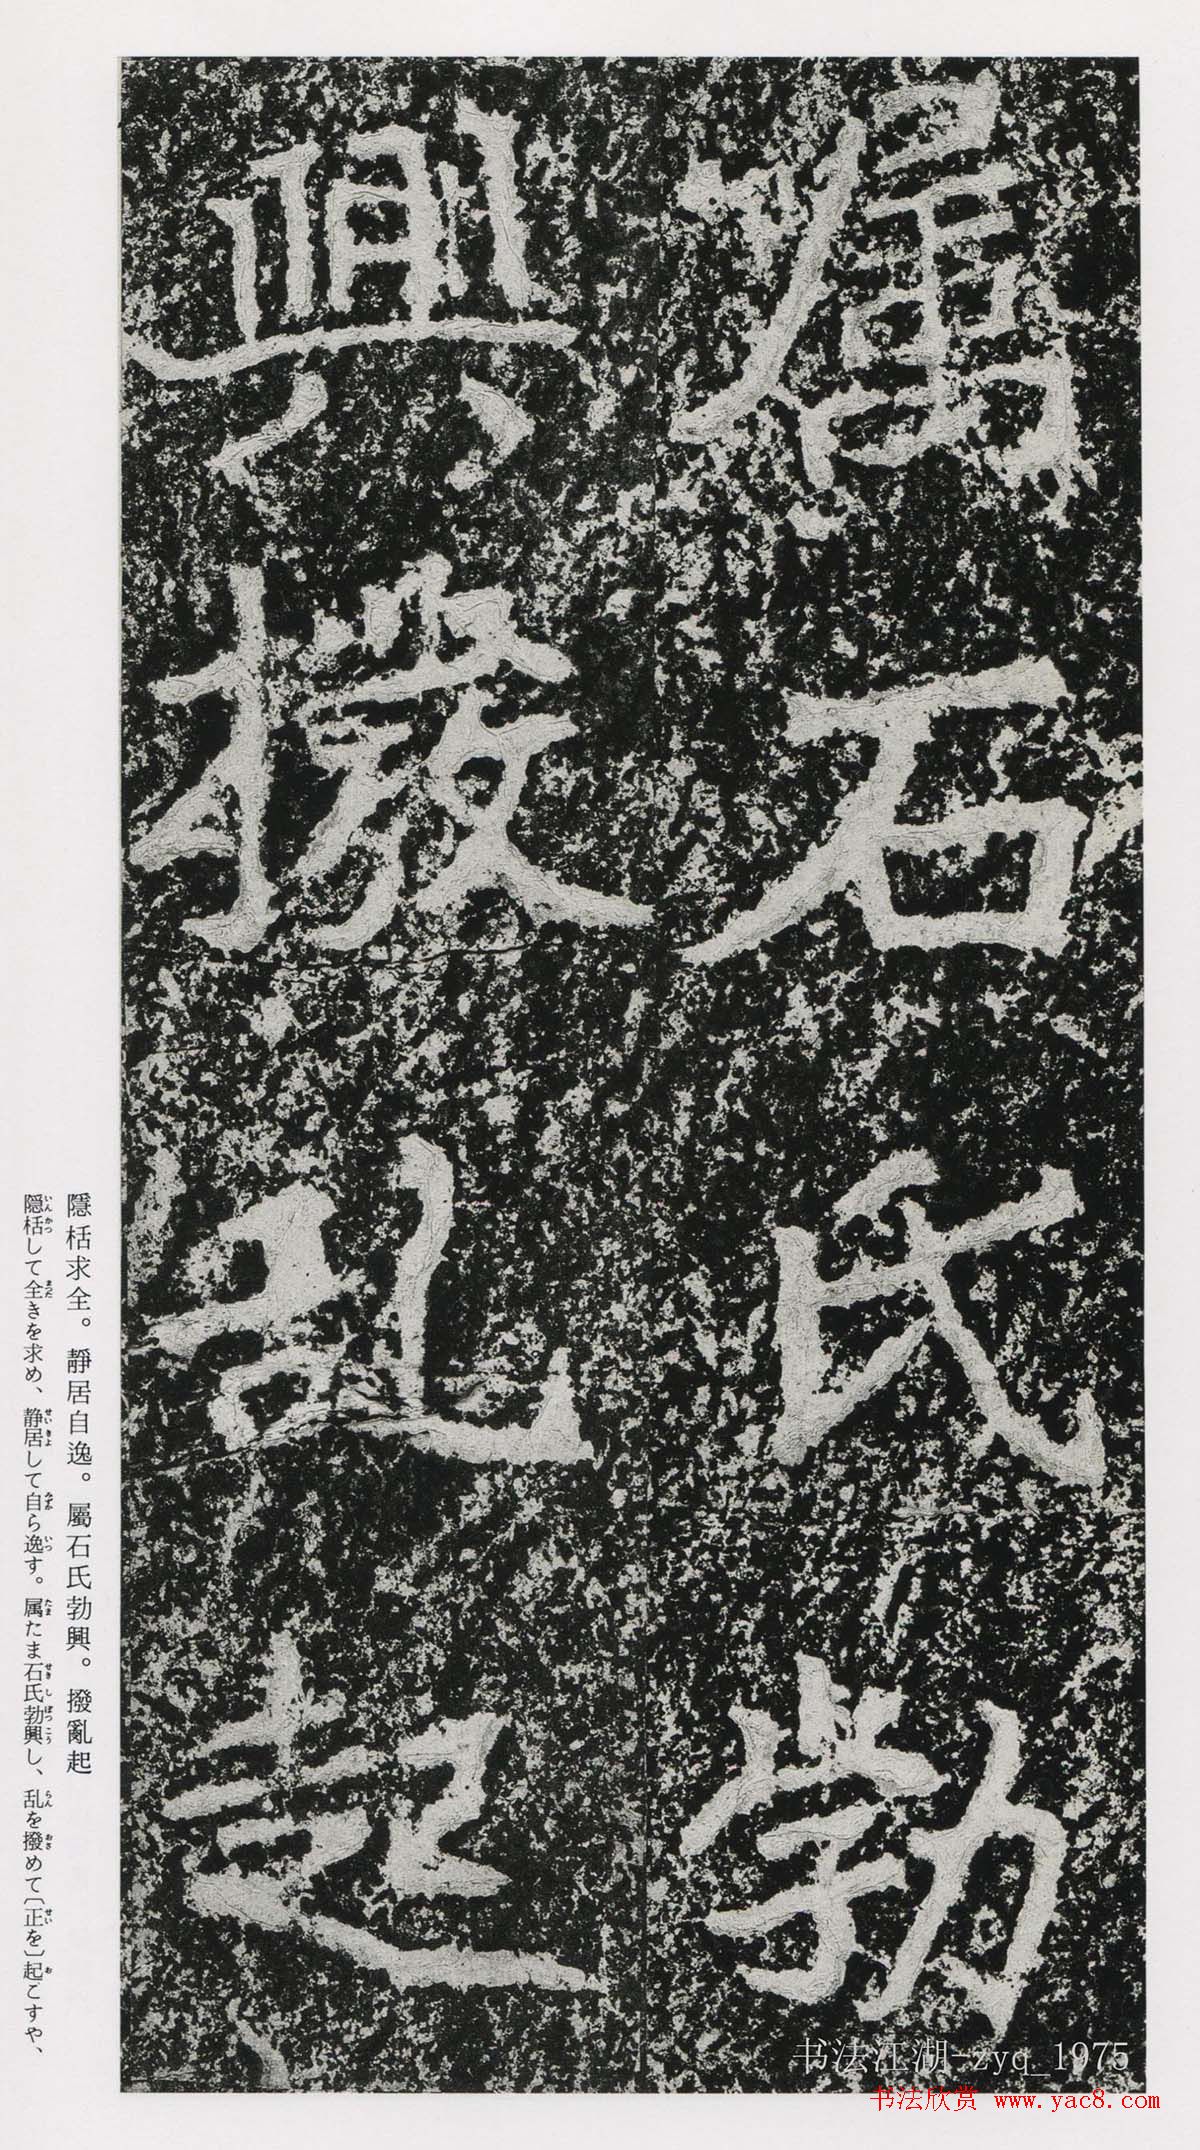 屬石氏勃
興撥乱起
隱栝求全。靜居自逸。屬石氏勃興。撥亂起
隠栝して全きを求め、静居して自ら逸す。属たま石氏勃興し、乱を撥めて〔正を〕起こすや、
书法江湖-zyq_1975
书法欣赏 www.yac8.com